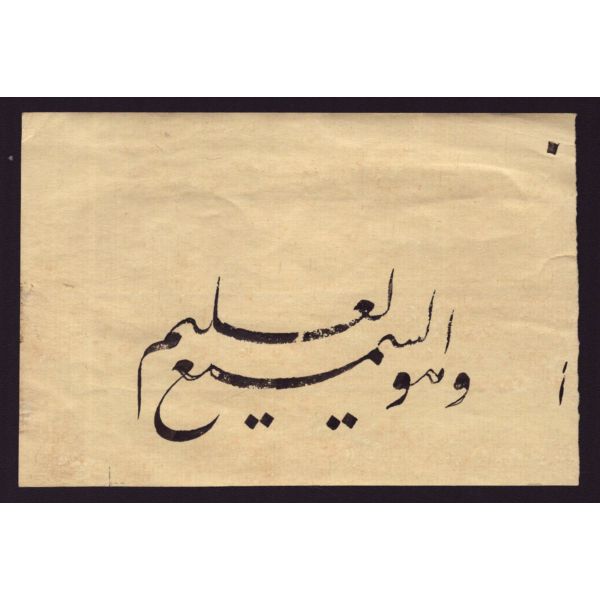 وهو السميع العليم